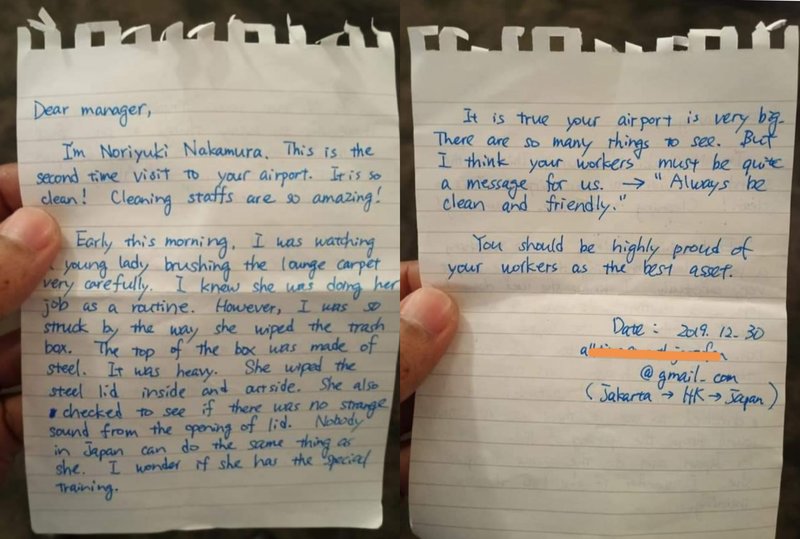 Dear manager,
I'm Noriyuki Nakamura. This is the
second time visit to your airport. It is so
clean! Cleaning staffs are so amazing!
Early this morning, I was watching
young lady brushing the lounge carpet
very carefully. I knew she was doing her
job as a routine. However, I was so
struck by the way she wiped the trash
box. The top of the box was made of
steel. It was heavy. She wiped the
steel lid inside and outside. She also
checked to see if there was no strange
sound from the opening of lid. Nobody
in Japan can do the same thing as
she. I wonder if she has the special
training.
It is true your airport is very big.
There are so many things to see. But
I think your workers must be quite
a message for us. → "Always be
clean and friendly."
You should be highly proud of
your workers as the best asset.
Date: 2019. 12. 30
@gmail.com
(Jakarta → HK → Japan)